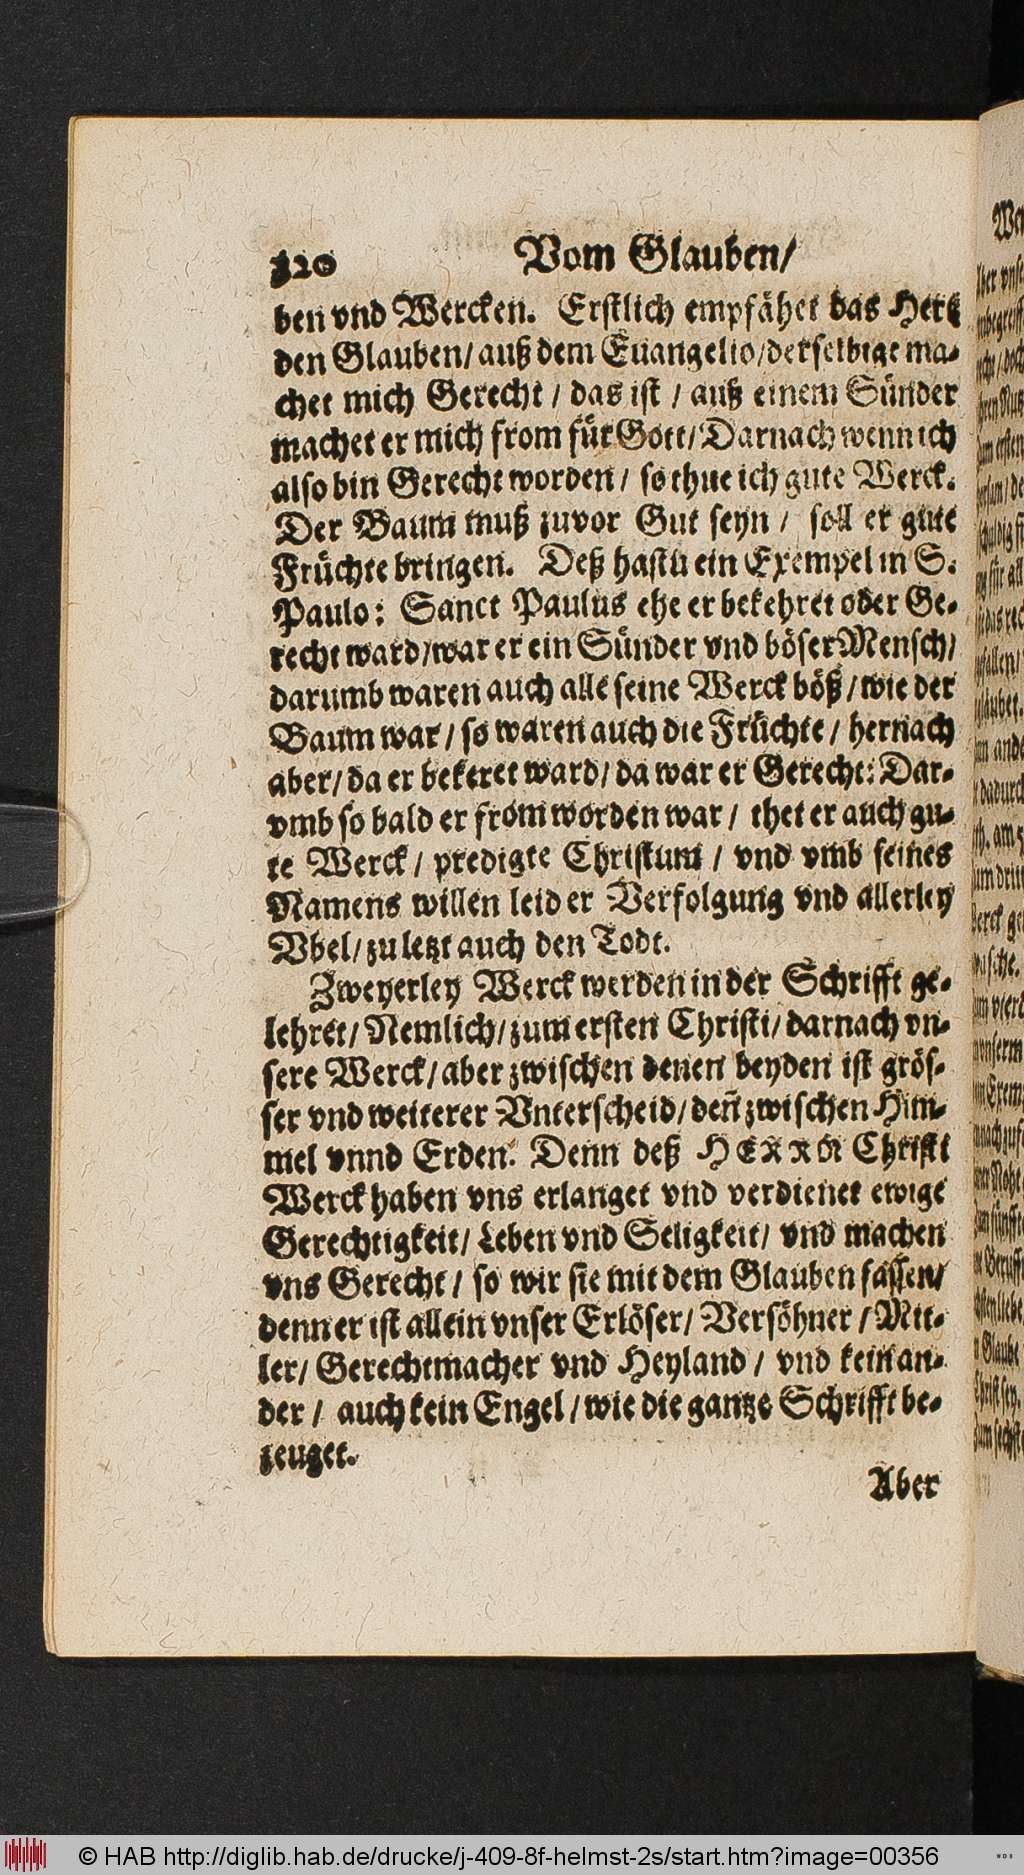 320 Vom Glauben/
ben vnd Wercken. Erstlich empfähet das Hertz
den Glauben/ auß dem Euangelio/derselbige ma-
chet mich Gerecht / das ist / auß einem Sünder
machet er mich from für Gott/ Darnach wenn ich
also bin Gerecht worden / so thue ich gute Werck.
Der Baum muß zuvor Gut seyn / soll er gute
Früchte bringen. Deß hastu ein Exempel in S.
Paulo: Sanct Paulus ehe er bekehret oder Ge-
recht ward/war er ein Sünder vnd böser Mensch/
darumb waren auch alle seine Werck böß/wie der
Baum war / so waren auch die Früchte / hernach
aber/ da er bekeret ward/ da war er Gerecht: Dar-
vmb so bald er from worden war / thet er auch gu-
te Werck / predigte Christum / vnd vmb seines
Namens willen leid er Verfolgung vnd allerley
Vbel/ zu letzt auch den Todt.
Zweyerley Werck werden in der Schrifft ge-
lehret/ Nemlich/ zum ersten Christi/ darnach vn-
sere Werck/ aber zwischen denen beyden ist grös-
ser vnd weiterer Vnterscheid/ deñ zwischen Him-
mel vnnd Erden. Denn deß HERRN Christi
Werck haben vns erlanget vnd verdienet ewige
Gerechtigkeit/ Leben vnd Seligkeit/ vnd machen
vns Gerecht / so wir sie mit dem Glauben fassen/
denn er ist allein vnser Erlöser/ Versöhner / Mit-
ler/ Gerechtmacher vnd Heyland / vnd kein an-
der / auch kein Engel / wie die gantze Schrifft be-
zeuget.
Aber
© HAB http://diglib.hab.de/drucke/j-409-8f-helmst-2s/start.htm?image=00356